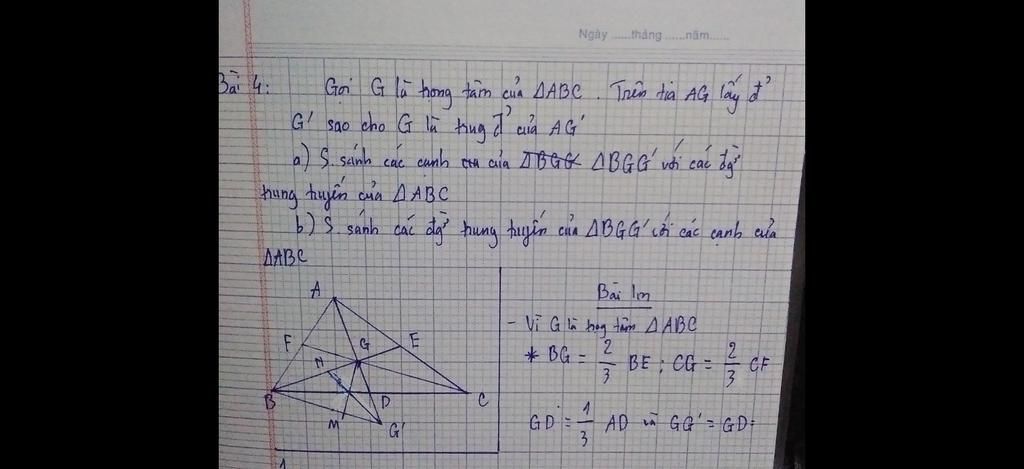 Ngày ......tháng ......năm......
Bài 4: Gọi G là trọng tâm của ΔABC. Trên tia AG lấy đ'
G' sao cho G là trung đ' của AG'
a) S. sánh các cạnh của ΔBGG' với các đg`
trung tuyến của ΔABC
b) S. sánh các đg` trung tuyến của ΔBGG' với các cạnh của
ΔABC
A
F G E
N
B D C
M G'
Bài làm
- Vì G là trọng tâm ΔABC
* BG = 2/3 BE ; CG = 2/3 CF
GD = 1/3 AD và GG' = GD